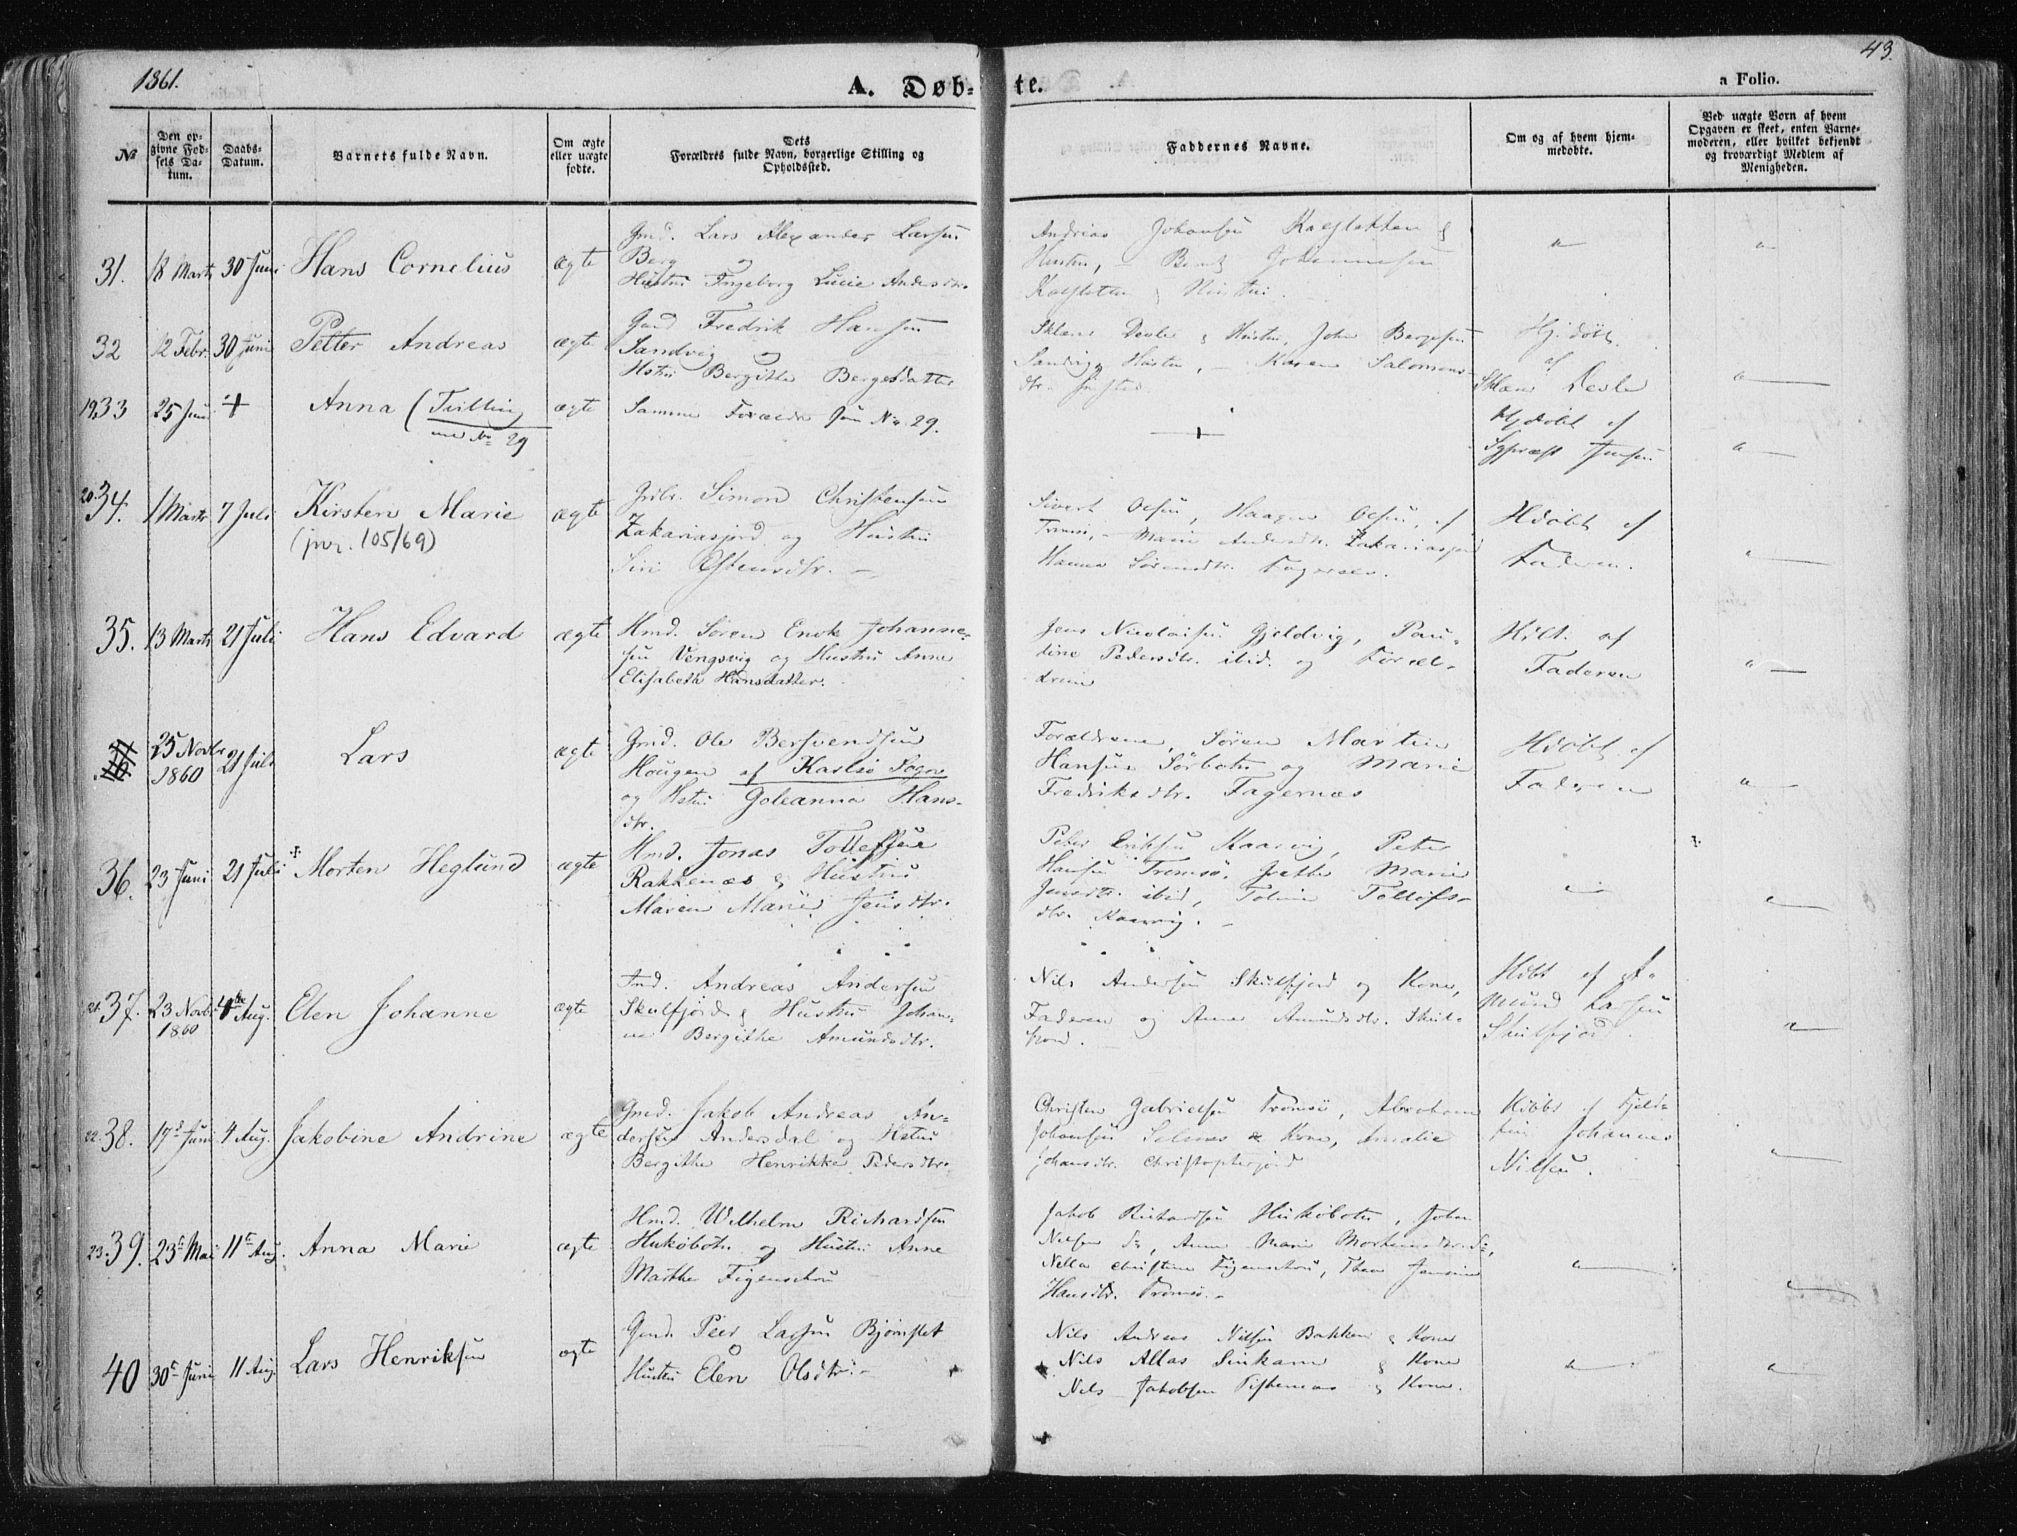 1861.
A. Døbte.
43.
a Folio.
No
Den opgivne Fødsels Datum.
Daabs-Datum.
Barnets fulde Navn.
Om ægte eller uægte fødte.
Dets Forældres fulde Navn, borgerlige Stilling og Opholdssted.
Faddernes Navne.
Om og af hvem hjemmedøbte.
Ved uægte Born af hvem Opgaven er skeet, enten Barnemoderen, eller hvilket bekjendt og troværdigt Medlem af Menigheden.
31. 18 Marts 30 Juni Hans Cornelius ægte
Gmd. Lars Alexander Larsen
Berg og
Hustru Ingeborg Lucie Andersdtr.
Andreas Johansen
Hustru, Johannesen
32 12 Febr. 30 Juni Petter Andreas ægte
Gmd Fredrik Hansen
Sandvig og
Hstru Bergithe Bergesdatter
& Hustru, John Bergesen
Sandvig Hustru, – Karen Salomons-
dtr.
Hj. døbt
af
19. 33 25 Juni + Anna (Tvilling
med No 29
ægte
Samme Forældre som No. 29.
+
Hjdøbt af
Jensen
20. 34. 1 Marts 7 Juli Kirsten Marie
(pvr. 105/69)
ægte
Simon Christensen
Zakariasjord og Hustru
Siri Østensdtr. –
Sivert Olsen, Haagen Olsen, af
Tromsø, – Marie Andersdtr. Zakariasjord
Hanna Sørensdtr. Fagernes.
Hdøbt af
Faderen.
35. 13 Marts 21 Juli Hans Edvard ægte
Hmd. Søren Enok Johanne-
sen Vengsvig og Hustru Anne
Elisabeth Hansdatter.
Jens Nicolaisen Gjeldvig, Pau-
line Pedersdtr. ibid. og Foræl-
drene
af
Faderen
25 Novbr 1860 21 Juli Lars ægte
Gmd. Ole Bersvendsen
Hougen af Karlsø Sogn
og Hstru Goleanna Hans-
dtr.
Forældrene, Søren Martin
Hansen Sørbotn og Marie
Fredriksdtr. Fagernæs
Hdøbt af
Faderen
36. 23 Juni 21 Juli Morten Heglund ægte
Hmd. Jonas Tollefsen
Rakkenæs & Hustru
Maren Marie Jensdtr.
Peter Eriksen Kaarvig, Peter
Hansen Tromsø, Grethe Marie
Jensdtr. ibid, Toline Tollefs-
dtr. Kaarvig. –
21. 37. 23 Novb. 1860 4de Aug. Elen Johanne ægte
Ind. Andreas Andersen
Skulfjord & Hustru Johan-
ne Bergithe Amundsdtr.
Nils Andersen Skulfjord og Kone,
Faderen og Anne Amundsdtr. Skul-
fjord.
af A-
mund Larsen
Skulfjord.
22. 38. 17de Juni 4 Aug. Jakobine Andrine ægte
Gmd. Jakob Andreas An-
dersen Andersdal og Hstru
Bergithe Henrikke Pedersdtr.
Christen Gabrielsen Tromsø, Abraham
Johansen Selnes & Kone, Amalie
Johansdtr. Christopherjord
af
Johannes
Nilsen.
23. 39. 23de Mai 11te Aug. Anna Marie ægte
Hmd. Wilhelm Richardsen
Hukøbotn og Hustru Anne
Marthe Figenschou
Jakob Richardsen Hukøbotn, John
Nilsen do, Anne Marie Mortensdtr. do,
Nella Christine Figenschou, Jensine
Hansdtr. Tromsø. –
40 30te Juni 11 Aug. Lars Henriksen ægte
Gmd. Peer Larsen Bjørnslet
Hustru Elen Olsdtr. –
Nils Andreas Nilsen Bakken & Kone
Nils Allas Sinkam & Kone
Nils Jakobsen Fiskenæs & Kone.